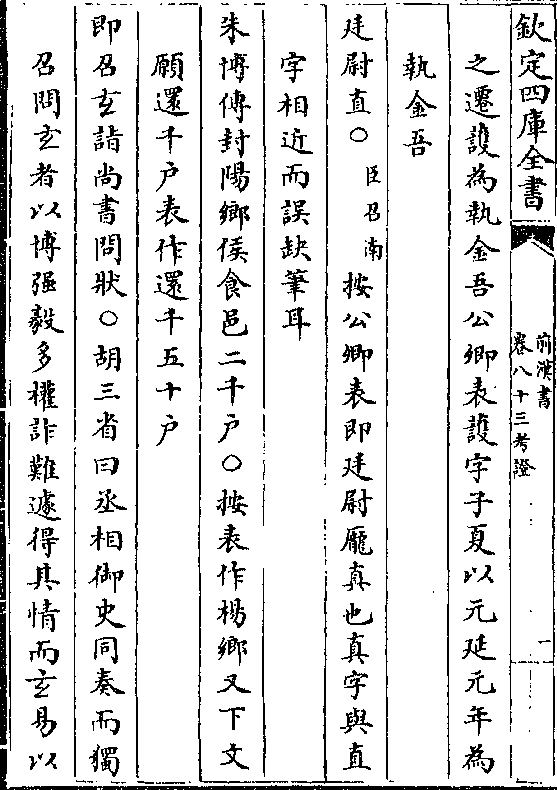 欽定四庫全書
前漢書
卷八十三考證
一
之遷護為執金吾公卿表護字子夏以元延元年為
執金吾
廷尉直○臣召南按公卿表即廷尉龐真也真字與直
字相近而誤缺筆耳
朱博傳封陽鄉侯食邑二千户○按表作楊鄉又下文
願還千户表作還千五十户
即召玄詣尚書問狀○胡三省曰丞相御史同奏而獨
召問玄者以博强毅多權詐難遽得其情而玄易以